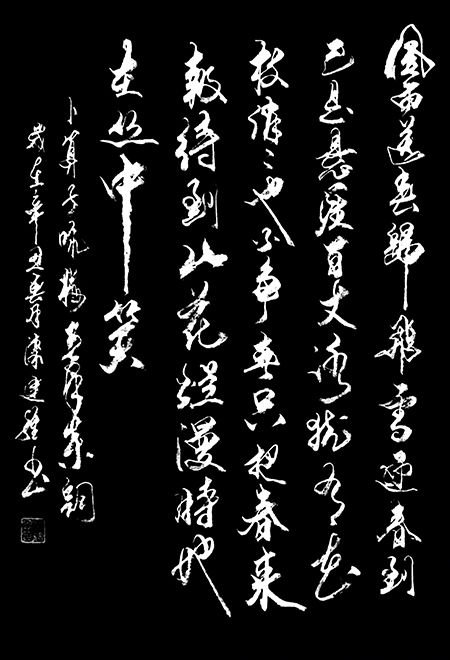 風雨送春歸飛雪迎春到
已是懸崖百丈冰猶有花
枝俏〻也不爭春只把春來
報待到山花爛漫時她
在丛中笑
卜算子咏梅毛澤東詞
歲在辛丑春月陳建書